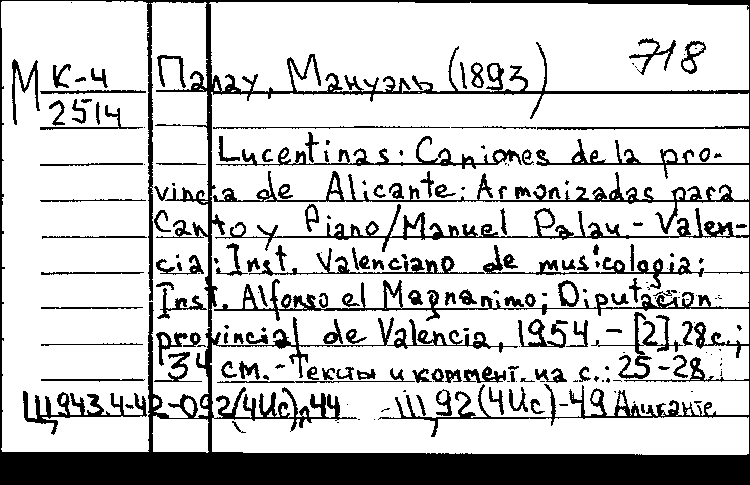 718
М К-4
2514
Палау, Мануэль (1893)
Lucentinas: Caniones de la pro-
vincia de Alicante: Armonizadas para
Canto y Piano/Manuel Palau - Valen-
cia: Inst. Valenciano de musicologia;
Inst. Alfonso el Magnanimo; Diputacion
provincial de Valencia, 1954. - [2], 28 с.;
34 см. - Тексты и коммент. на с.: 25-28.
Щ943.4-42-092(4Ис)л44 Щ92(4Ис)-49 Аликанте